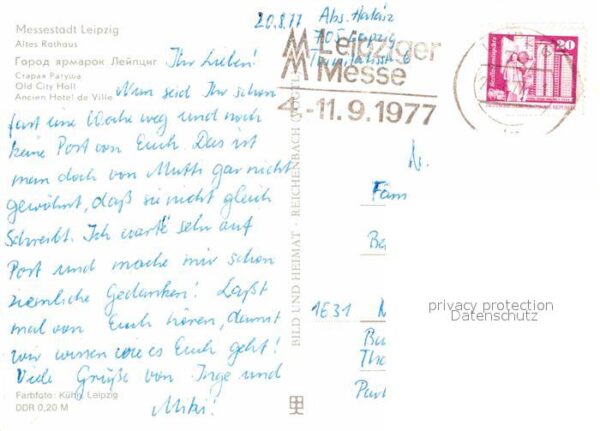 Messestadt Leipzig
Altes Rathaus
Город ярмарок Лейпциг
Старая Ратуша
Old City Hall
Ancien Hotel de Ville
20.8.77
Abs.
705 Leipzig
MM Leipziger
Messe
4.-11.9.1977
20
Ihr Lieben!
Nun seid Ihr schon
fast eine Woche weg und noch
keine Post von Euch. Das ist
man doch von Mutti gar nicht
gewöhnt, daß sie nicht gleich
schreibt. Ich warte sehr auf
Post und mache mir schon
ziemliche Gedanken! Laßt
mal von Euch hören, damit
wir wissen wie es Euch geht!
Viele Grüße von Inge und
Miki!
BILD UND HEIMAT · REICHENBACH (VOGTL)
Fam
1E31
privacy protection
Datenschutz
Farbfoto: Kühn, Leipzig
DDR 0,20 M